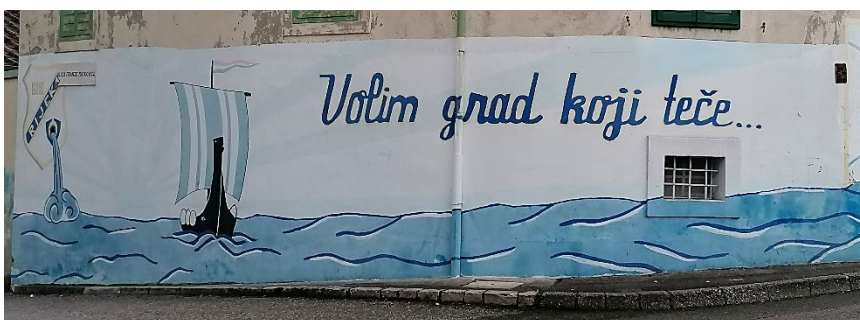 RIJEKA
Volim grad koji teče...